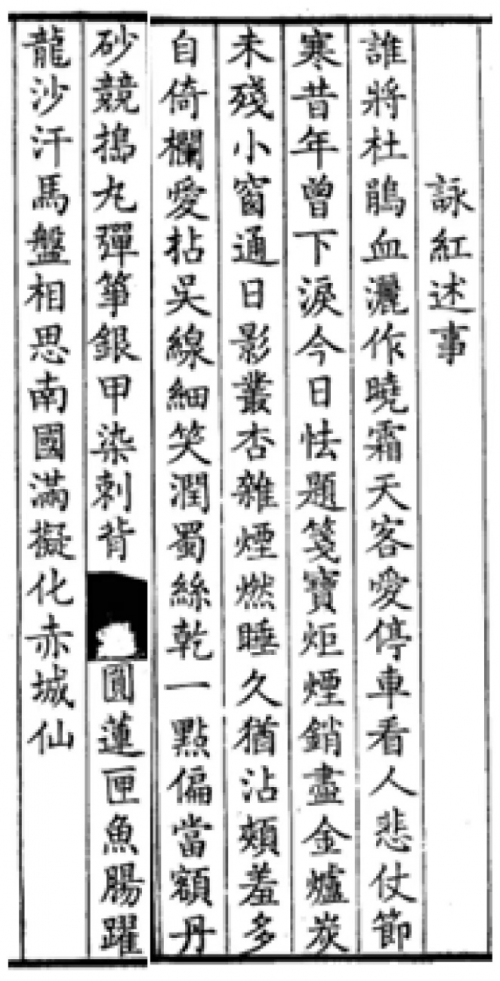 詠紅述事
誰將杜鵑血灑作曉霜天客愛停車看人悲仗節
寒昔年曾下淚今日怯題箋寶炬煙銷盡金爐炭
未殘小窗通日影叢杏雜煙燃睡久猶沾頰羞多
自倚欄愛拈吳線細笑潤蜀絲乾一點偏當額丹
砂競搗丸彈箏銀甲染刺背圓蓮匣魚腸躍
龍沙汗馬盤相思南國滿擬化赤城仙